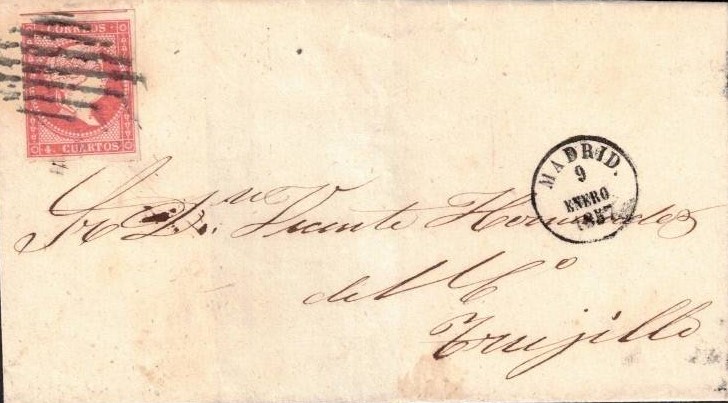 CORREOS
4. CUARTOS
MADRID.
9
ENERO
1857
Vicente Hernandez
del
Trujillo